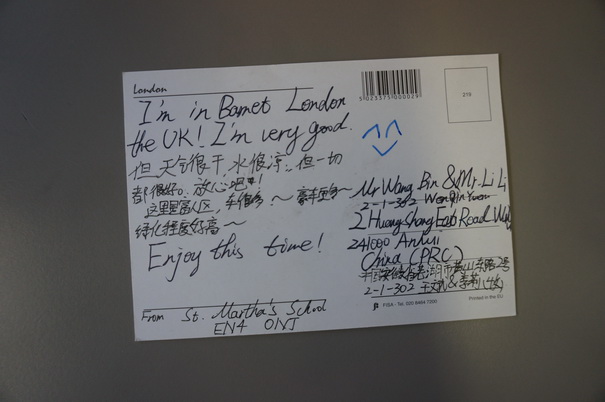 London
I'm in Barnet London
the UK! I'm very good.
但天气很干,水很凉,但一切
都很好。放心吧!
这里是富人区,车很多~豪车更多~
绿化程度好高~
Enjoy this time!
From St. Martha's School
EN4 0NJ
5 023375 000029
219
Mr Wang Bin & Mr. Li Li
2-1-302 Wen Yuan
2 Huang Shang East Road
241000 Anhui
China (PRC)
中国安徽省芜湖市东路2号
2-1-302 王斌&李莉(收)
FISA - Tel: 020 8464 7200
Printed in the EU